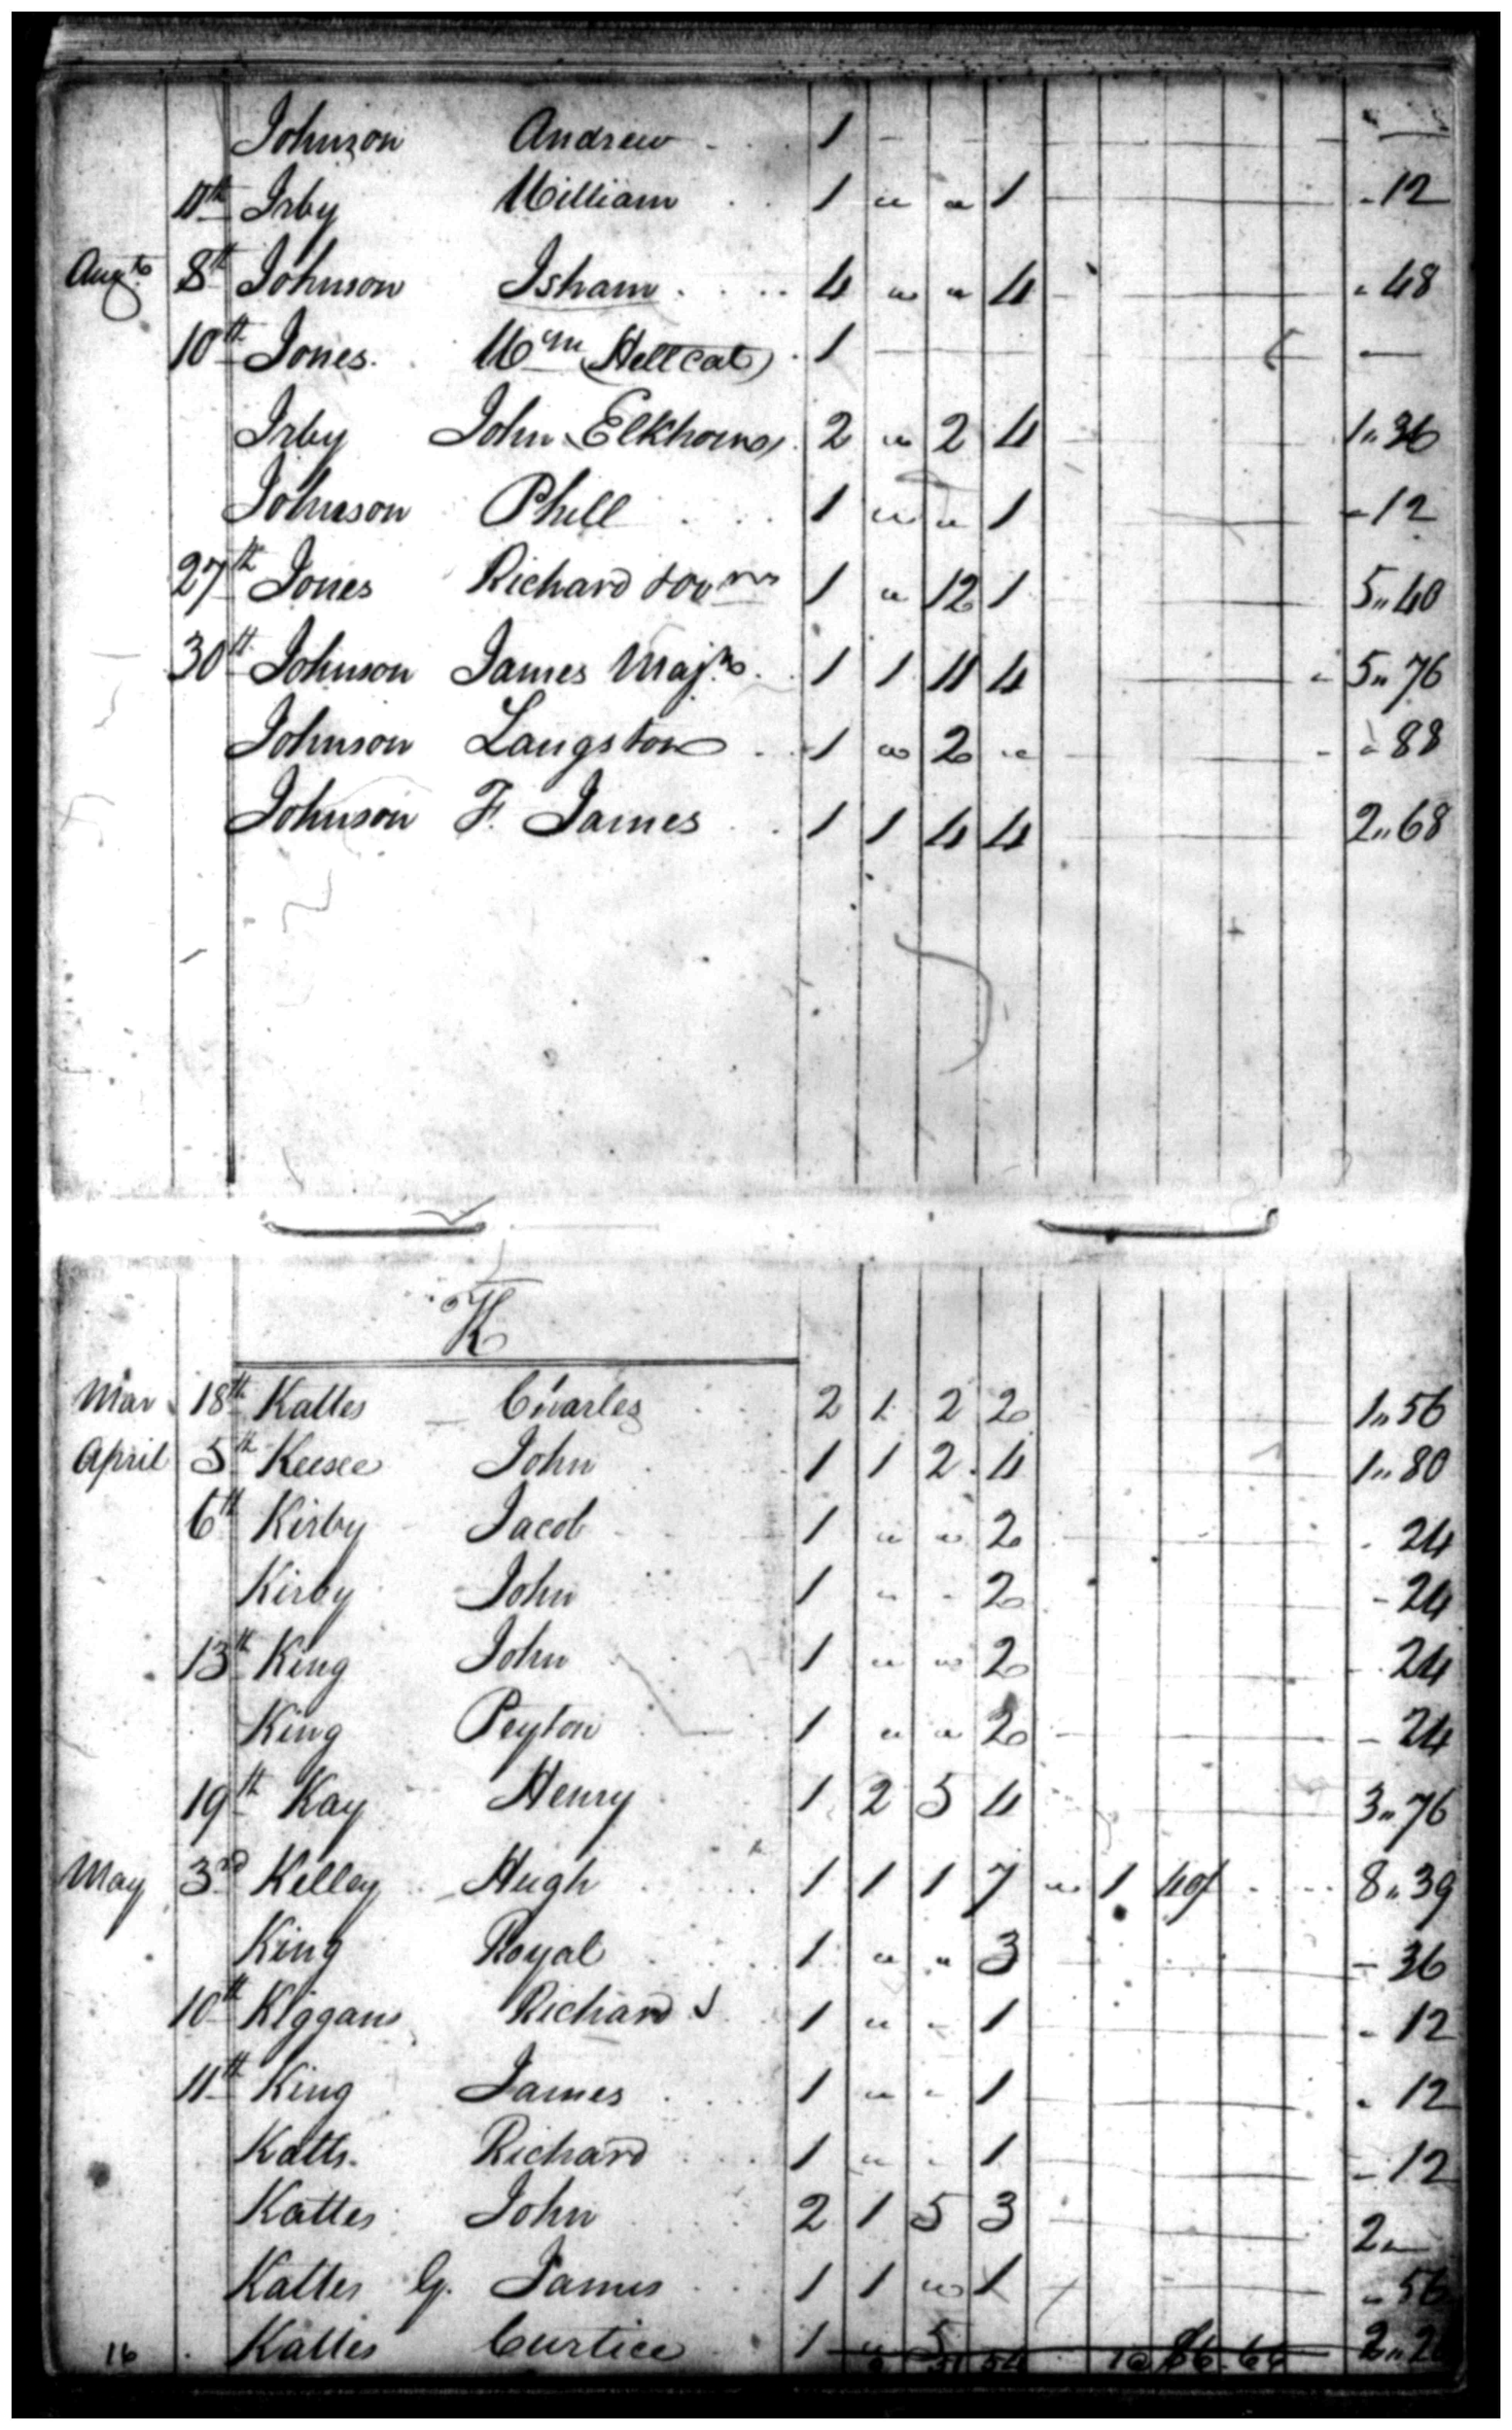 Johnson Andrew 1 - —
11th Irby William 1 " " 1 - 12
Augt 8th Johnson Isham 4 " " 4 " 48
10th Jones Wm (Hellcat) 1 —
Irby John Elkhorn 2 " 2 4 1" 36
Johnson Phill 1 " " 1 - 12
27th Jones Richard 1 " 12 1 5" 40
30th Johnson James Majr 1 1 11 4 5" 76
Johnson Langston 1 " 2 " " 88
Johnson F. James 1 1 4 4 2" 68
K
Mar 18th Kaltes Charles 2 1 2 2 1" 56
April 5th Keesee John 1 1 2 4 1" 80
6th Kirby Jacob 1 " " 2 - 24
Kirby John 1 " - 2 - 24
13th King John 1 " " 2 - 24
King Peyton 1 " " 2 - 24
19th Kay Henry 1 2 5 4 3" 76
May 3rd Kelley Hugh 1 1 1 7 " 1 8" 39
King Royal 1 " " 3 - 36
10th Kiggans Richard J 1 " - 1 - 12
11th King James 1 " - 1 - 12
Katts Richard 1 " - 1 - 12
Kattes John 2 1 5 3 2"—
Kattes G. James 1 1 " 1 " 56
16 Kattes Curtice 1 " 5